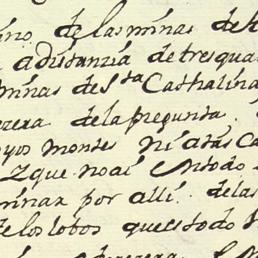 ino de las minas de
a distanzia de tres qua
minas de S^ta Cathalina
de la pregunta.
yos montes ni atas Ca
Z que noai En todo
minar por alli. de las
de los lobos que es todo